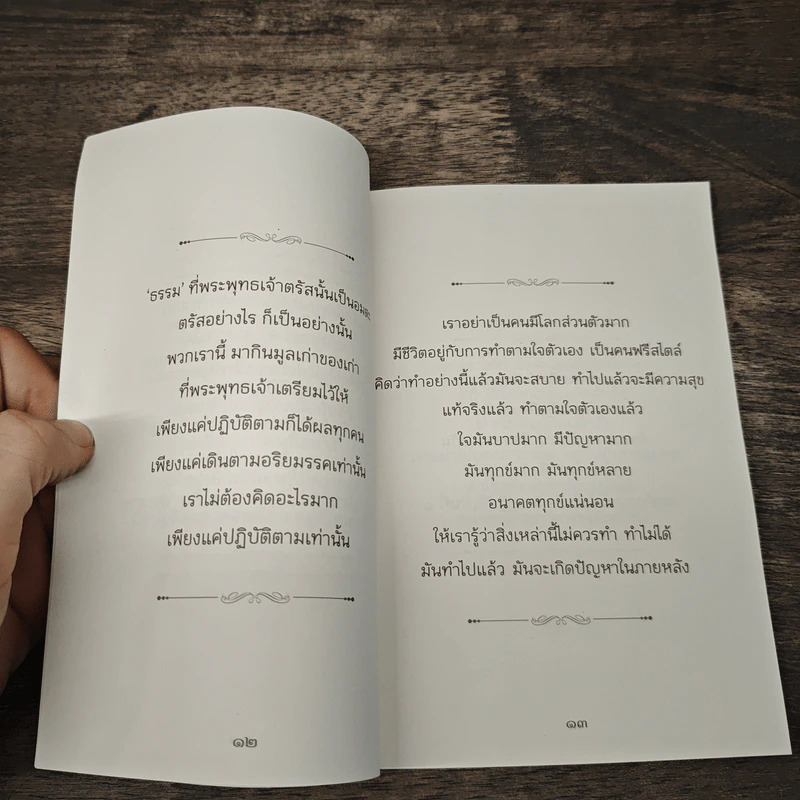 ‘ธรรม’ ที่พระพุทธเจ้าตรัสนั้นเป็นอมตะ
ตรัสอย่างไร ก็เป็นอย่างนั้น
พวกเรานี้ มากินมูลเก่าของเก่า
ที่พระพุทธเจ้าเตรียมไว้ให้
เพียงแค่ปฏิบัติตามก็ได้ผลทุกคน
เพียงแค่เดินตามอริยมรรคเท่านั้น
เราไม่ต้องคิดอะไรมาก
เพียงแค่ปฏิบัติตามเท่านั้น
๑๒
เราอย่าเป็นคนมีโลกส่วนตัวมาก
มีชีวิตอยู่กับการทำตามใจตัวเอง เป็นคนฟรีสไตล์
คิดว่าทำอย่างนี้แล้วมันจะสบาย ทำไปแล้วจะมีความสุข
แท้จริงแล้ว ทำตามใจตัวเองแล้ว
ใจมันบาปมาก มีปัญหามาก
มันทุกข์มาก มันทุกข์หลาย
อนาคตทุกข์แน่นอน
ให้เรารู้ว่าสิ่งเหล่านี้ไม่ควรทำ ทำไม่ได้
มันทำไปแล้ว มันจะเกิดปัญหาในภายหลัง
๑๓